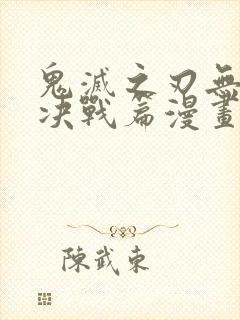 鬼滅之刃無
決戰篇漫畫
陳武東